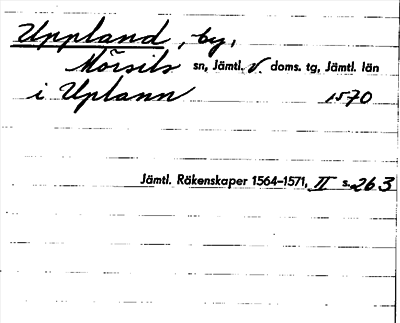 Uppland, by,
Mörsils sn, Jämtl. V. doms. tg, Jämtl. län
i Uplann 1570
Jämtl. Räkenskaper 1564-1571, II s. 263